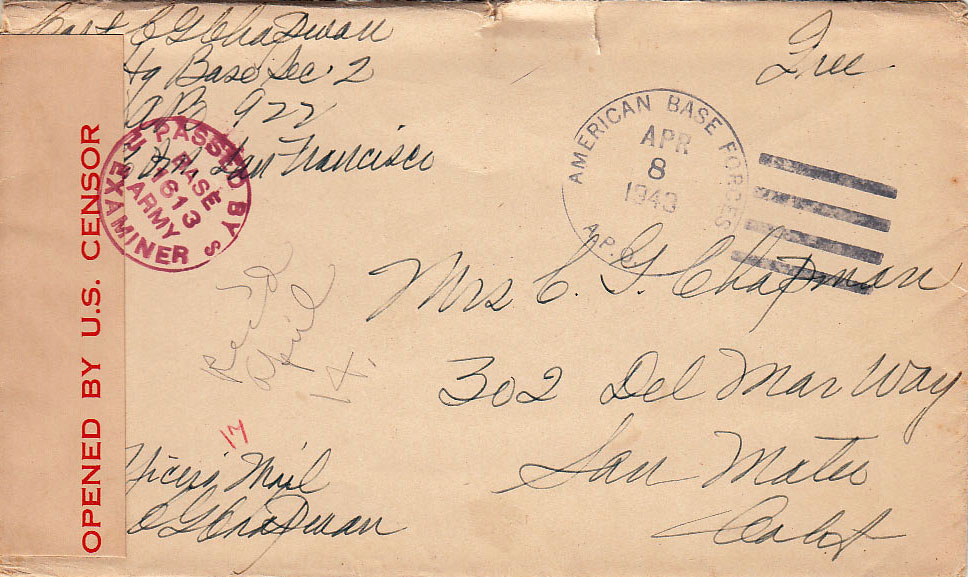 Capt C G Chapman
Hq Base Sec. 2
922
San Francisco
Free
OPENED BY U.S. CENSOR
PASSED BY
BASE
1613
ARMY
EXAMINER
AMERICAN BASE FORCES
APR
8
1943
A.P.O.
Mrs C. G. Chapman
302 Del Mar Way
San Mateo
Calif.
Rec'd
April
14.
17
Mail
C G Chapman